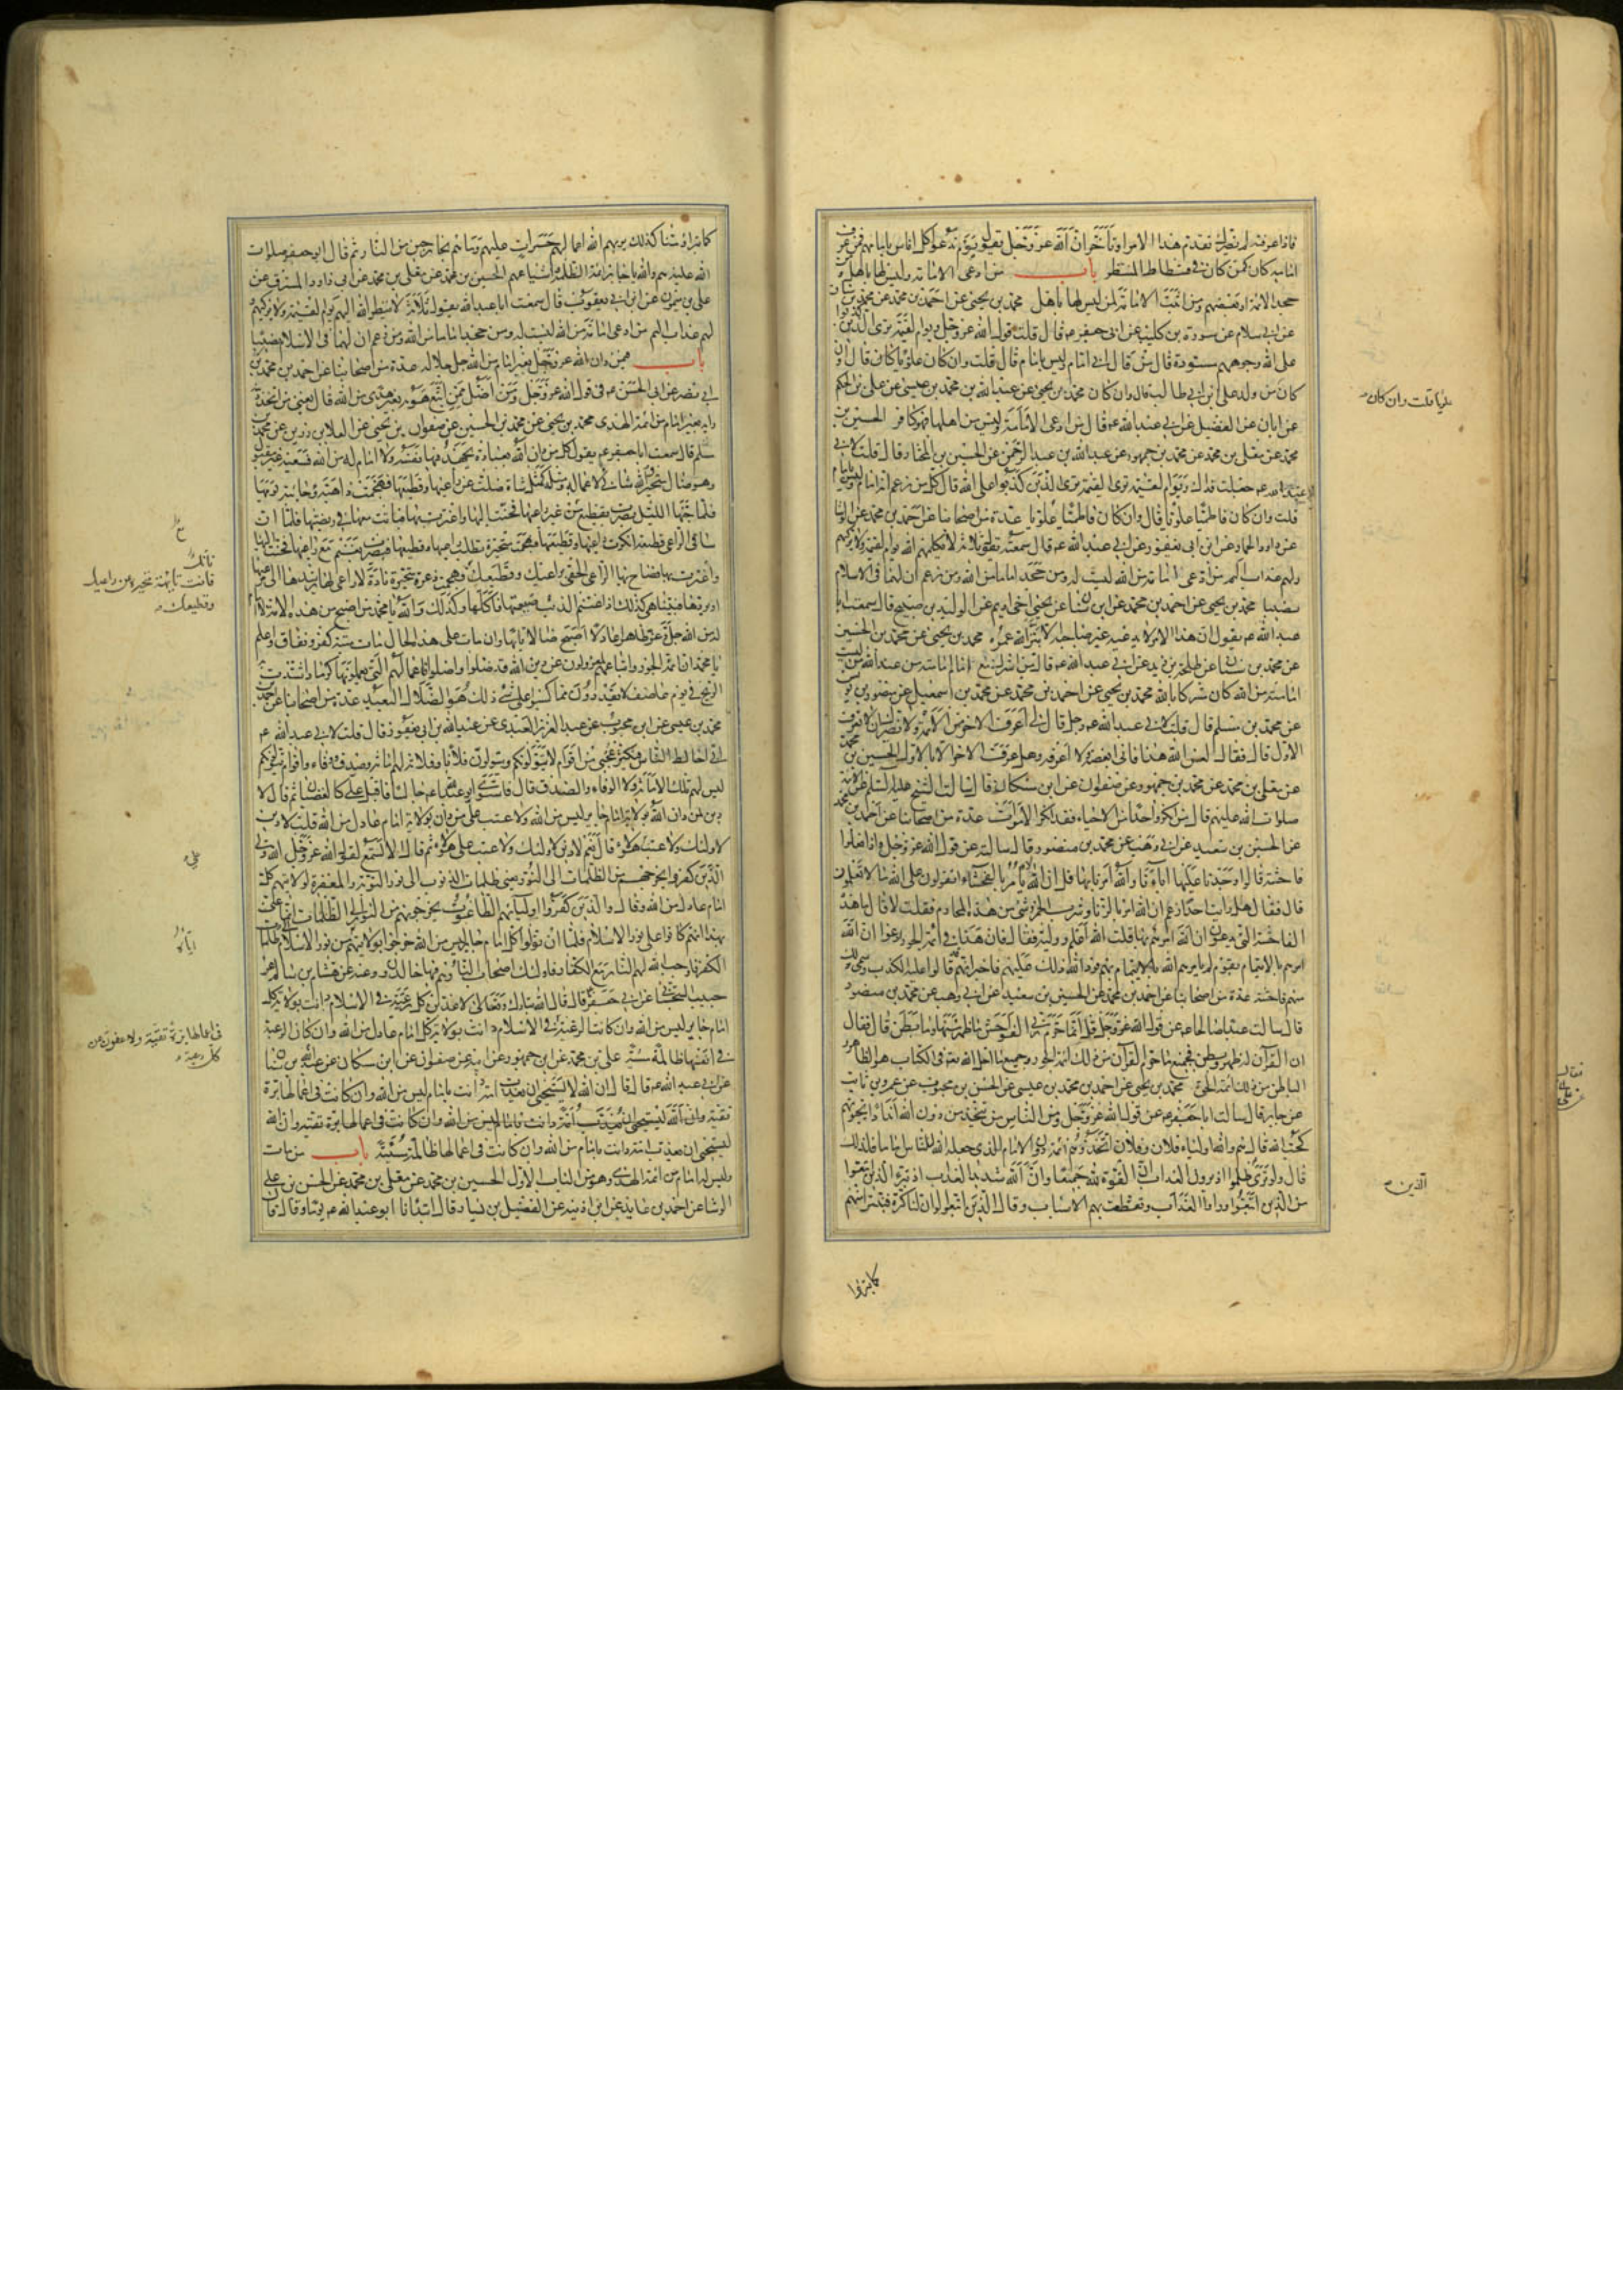 فاذا عرفته لم يضرك تقدم هذا الامر او تأخر ان الله عز وجل يقول يوم ندعو كل اناس بامامهم فمن عرف
امامه كان كمن كان في فسطاط المنتظر باب من ادعى الامامة وليس لها باهل ومن
جحد الائمة او بعضهم ومن اثبت الامامة لمن ليس لها باهل محمد بن يحيى عن احمد بن محمد عن محمد بن سنان
عن ابي سلام عن سورة بن كليب عن ابي جعفر ع قال قلت له قول الله عز وجل ويوم القيمة ترى الذين كذبوا
على الله وجوههم مسودة قال من قال اني امام وليس بامام قال قلت وان كان علويا قال وان كان علويا قلت وان
كان من ولد علي بن ابي طالب قال وان كان محمد بن يحيى عن عبد الله بن محمد بن عيسى عن علي بن الحكم
عن ابان عن الفضيل عن ابي عبد الله ع قال من ادعى الامامة وليس من اهلها فهو كافر الحسين بن
محمد عن معلى بن محمد عن محمد بن جمهور عن عبد الله بن عبد الرحمن عن الحسين بن المختار قال قلت لابي
عبد الله ع جعلت فداك ويوم القيمة ترى الذين كذبوا على الله قال كل من زعم انه امام وليس بامام
قلت وان كان فاطميا علويا قال وان كان فاطميا علويا عدة من اصحابنا عن احمد بن محمد عن الوشا
عن داود الحمار عن ابن ابي يعفور عن ابي عبد الله ع قال سمعته يقول ثلثة لا يكلمهم الله يوم القيمة ولا يزكيهم
ولهم عذاب اليم من ادعى امامة من الله ليست له ومن جحد اماما من الله ومن زعم ان لهما في الاسلام
نصيبا محمد بن يحيى عن احمد بن محمد عن ابن سنان عن يحيى اخي اديم عن الوليد بن صبيح قال سمعت ابا
عبد الله ع يقول ان هذا الامر لا يدعيه غير صاحبه الا بتر الله عمره محمد بن يحيى عن محمد بن الحسين
عن محمد بن سنان عن طلحة بن زيد عن ابي عبد الله ع قال من اشرك مع امام امامته من عند الله من ليست
امامته من الله كان مشركا بالله محمد بن يحيى عن احمد بن محمد عن محمد بن اسمعيل عن منصور بن يونس
عن محمد بن مسلم قال قلت لابي عبد الله ع رجل قال لي اعرف الاخر من الائمة ولا يضرك ان لا تعرف
الاول قال فقال لعن الله هذا فاني ابغضه ولا اعرفه وهل عرف الاخر الا بالاول الحسين بن محمد
عن معلى بن محمد عن محمد بن جمهور عن صفوان عن ابن مسكان قال سالت الشيخ عليه السلم عن الائمة
صلوات الله عليهم قال من انكر واحدا من الاحياء فقد انكر الاموات عدة من اصحابنا عن احمد بن محمد
عن الحسين بن سعيد عن ابي وهب عن محمد بن منصور قال سالته عن قول الله عز وجل واذا فعلوا
فاحشة قالوا وجدنا عليها اباءنا والله امرنا بها قل ان الله لا يأمر بالفحشاء اتقولون على الله ما لا تعلمون
قال فقال هل رايت احدا زعم ان الله امر بالزنا وشرب الخمر او شئ من هذه المحارم فقلت لا قال ما هذه
الفاحشة التي يدعون ان الله امرهم بها قلت الله اعلم ووليه فقال فان هذا في ائمة الجور ادعوا ان الله
امرهم بالايتمام بقوم لم يامرهم الله بالايتمام بهم فرد الله ذلك عليهم فاخبر انهم قالوا عليه الكذب وسمى ذلك
منهم فاحشة عدة من اصحابنا عن احمد بن محمد عن الحسين بن سعيد عن ابي وهب عن محمد بن منصور
قال سالت عبدا صالحا ع عن قول الله عز وجل قل انما حرم ربي الفواحش ما ظهر منها وما بطن قال فقال
ان القرآن له ظهر وبطن فجميع ما حرم القرآن من ذلك ائمة الجور وجميع ما احل الله تعالى في الكتاب هو الظاهر
الباطن من ذلك ائمة الحق محمد بن يحيى عن احمد بن محمد بن عيسى عن الحسن بن محبوب عن عمرو بن ثابت
عن جابر قال سالت ابا جعفر ع عن قول الله عز وجل ومن الناس من يتخذ من دون الله اندادا يحبونهم
كحب الله قال هم والله اولياء فلان وفلان اتخذوهم ائمة دون الامام الذي جعله الله للناس اماما فلذلك
قال ولو ترى ظلموا اذ يرون العذاب ان القوة لله جميعا وان الله شديد العذاب اذ تبرء الذين اتبعوا
من الذين اتبعوا وراوا العذاب وتقطعت بهم الاسباب وقال الذين اتبعوا لو ان لنا كرة فنتبرا منهم
كما تبرؤا
علويا قلت وان كان
الذين
كما تبراؤ منا كذلك يريهم الله اعمالهم حسرات عليهم وما هم بخارجين من النار ثم قال ابو جعفر صلوات
الله عليه هم والله يا جابر ائمة الظلمة واشياعهم الحسين بن محمد عن معلى بن محمد عن ابي داود المسترق عن
علي بن ميمون عن ابن ابي يعقوب قال سمعت ابا عبد الله يقول ثلاثة لا ينظر الله اليهم يوم القيمة ولا يزكيهم و
لهم عذاب اليم من ادعى امامة من الله ليست له ومن جحد اماما من الله ومن زعم ان لهما في الاسلام نصيبا
باب فيمن دان الله عز وجل بغير امام من الله جل جلاله عدة من اصحابنا عن احمد بن محمد بن
ابي نصر عن ابي الحسن ع في قول الله عز وجل ومن اضل ممن اتبع هواه بغير هدى من الله قال يعني من اتخذ
رايه بغير امام من ائمة الهدى محمد بن يحيى عن محمد بن الحسين عن صفوان بن يحيى عن العلا بن رزين عن محمد بن
مسلم قال سمعت ابا جعفر ع يقول كل من دان الله بعبادة يجهد فيها نفسه ولا امام له من الله فسعيه غير مقبول
وهو ضال متحير والله شانئ لاعماله ومثله كمثل شاة ضلت عن راعيها وقطيعها فهجمت ذاهبة وجائية يومها
فلما جنها الليل بصرت بقطيع من غير راعيها فحنت اليها واغترت بها فباتت معها في ربضتها فلما ان
ساق الراعي قطيعه انكرت راعيها وقطيعها فهجمت متحيرة تطلب راعيها وقطيعها فبصرت بغنم مع راعيها فحنت اليها
واغترت بها فصاح بها الراعي الحقي براعيك وقطيعك فهجمت ذعرة متحيرة نادة لا راعي لها يرشدها الى مرعيها
او يردها فبينا هي كذلك اذ اغتنم الذئب ضيعتها فاكلها وكذلك والله يا محمد من اصبح من هذه الامة لا امام
له من الله جل وعز ظاهرا عادلا اصبح ضالا تايها وان مات على هذه الحال مات ميتة كفر ونفاق واعلم
يا محمد ان ائمة الجور واتباعهم لمعزولون عن دين الله قد ضلوا واضلوا فاعمالهم التي يعملونها كرماد اشتدت به
الريح في يوم عاصف لا يقدرون مما كسبوا على شئ ذلك هو الضلال البعيد عدة من اصحابنا عن احمد بن
محمد بن عيسى عن ابن محبوب عن عبد العزيز العبدي عن عبد الله بن ابي يعفور قال قلت لابي عبد الله ع
اني اخالط الناس فيكثر عجبي من اقوام لا يتولونكم ويتولون فلانا وفلانا لهم امانة وصدق ووفاء واقوام يتولونكم
ليس لهم تلك الامانة ولا الوفاء والصدق قال فاستوى ابو عبد الله ع جالسا فاقبل علي كالغضبان ثم قال لا
دين لمن دان الله بولاية امام جاير ليس من الله ولا عتب على من دان بولاية امام عادل من الله قلت لا دين
لاولئك ولا عتب على هؤلاء قال نعم لا دين لاولئك ولا عتب على هؤلاء ثم قال الا تسمع لقول الله عز وجل الله ولي
الذين كفروا يخرجهم من الظلمات الى النور يعني ظلمات الذنوب الى نور التوبة والمغفرة لولايتهم كل
امام عادل من الله وقال والذين كفروا اولياؤهم الطاغوت يخرجونهم من النور الى الظلمات انما عنى
بهذا انهم كانوا على نور الاسلام فلما ان تولوا كل امام جاير ليس من الله خرجوا بولايتهم من نور الاسلام الى ظلمات
الكفر فاوجب الله لهم النار مع الكفار فاولئك اصحاب النار هم فيها خالدون وعنه عن هشام بن سالم عن
حبيب السجستاني عن ابي جعفر ع قال قال الله تبارك وتعالى لاعذبن كل رعية في الاسلام دانت بولاية كل
امام جاير ليس من الله وان كانت الرعية في الاسلام دانت بولاية كل امام عادل من الله وان كان الرعية
في انفسها ظالمة مسيئة علي بن محمد عن ابن جمهور عن ابيه عن صفوان عن ابن مسكان عن عبد الله بن سنان
عن ابي عبد الله ع قال قال ان الله لا يستحيي ان يعذب امة دانت بامام ليس من الله وان كانت في اعمالها برة
تقية وان الله ليستحيي ان يعذب امة دانت بامام ليس من الله وان كانت في اعمالها برة تقية وان الله
ليستحيي ان يعذب امة دانت بامام من الله وان كانت في اعمالها ظالمة مسيئة باب من مات
وليس له امام من ائمة الهدى وهو من الباب الاول الحسين بن محمد عن معلى بن محمد عن الحسن بن علي
الوشا عن احمد بن عايذ عن ابن اذينة عن الفضيل بن يسار قال ابتدانا ابو عبد الله ع يوما وقال قال
فانت تايهة متحيرة عن راعيك
وقطيعك
على
في اعمالها برة تقية ولاعفون عن
كل رعية